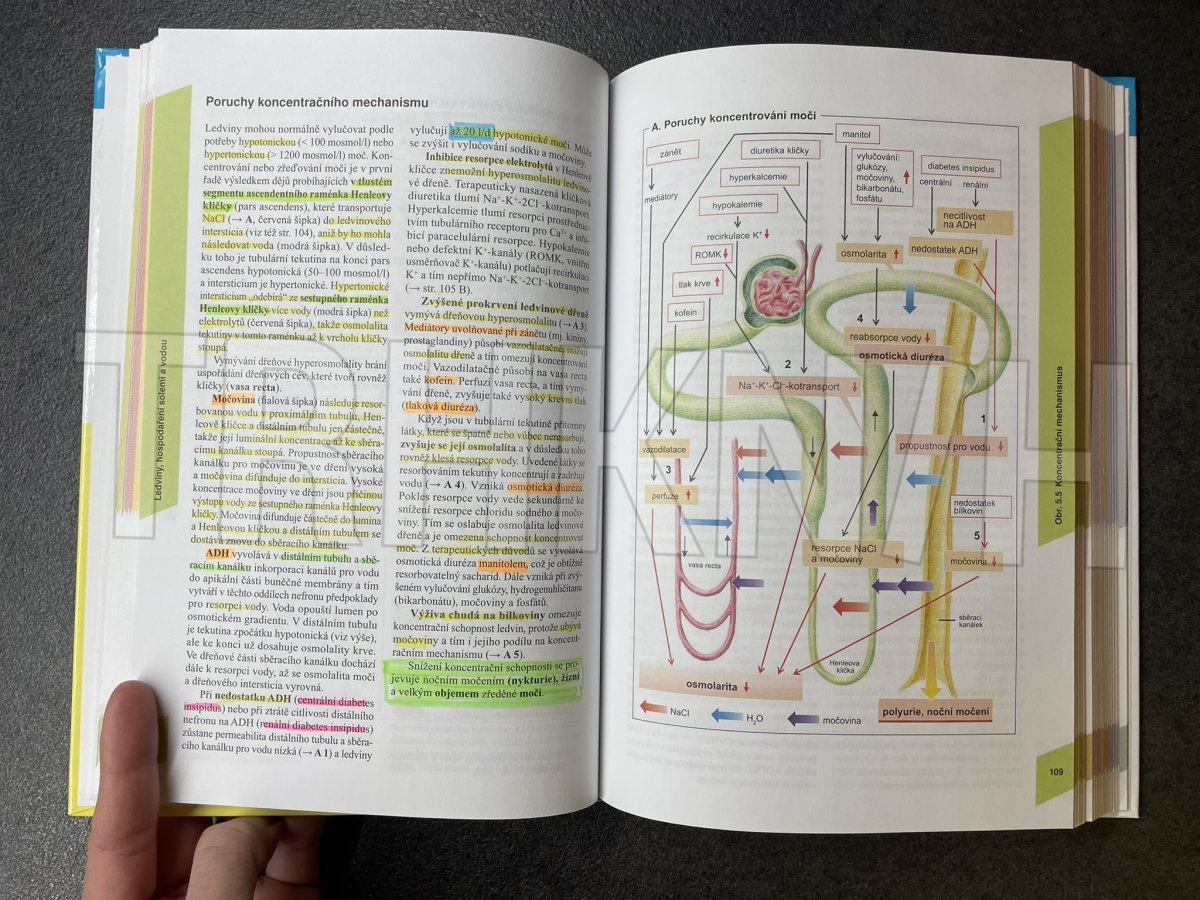 Poruchy koncentračního mechanismu
Ledviny mohou normálně vylučovat podle
potřeby hypotonickou (< 100 mosmol/l) nebo
hypertonickou (> 1200 mosmol/l) moč. Kon-
centrování nebo zřeďování moči je v první
řadě výsledkem dějů probíhajících v tlustém
segmentu ascendentního raménka Henleovy
kličky (pars ascendens), které transportuje
NaCl (→ A, červená šipka) do ledvinového
intersticia (viz též str. 104), aniž by ho mohla
následovat voda (modrá šipka). V důsled-
ku toho je tubulární tekutina na konci pars
ascendens hypotonická (50–100 mosmol/l)
a intersticium je hypertonické. Hypertonické
intersticium „odebírá“ ze sestupného raménka
Henleovy kličky více vody (modrá šipka) než
elektrolytů (červená šipka), takže osmolalita
tekutiny v tomto raménku až k vrcholu kličky
stoupá.
Vymývání dřeňové hyperosmolality brání
uspořádání dřeňových cév, které tvoří rovněž
kličky (vasa recta).
Močovina (fialová šipka) následuje resor-
bovanou vodu v proximálním tubulu, Hen-
leově kličce a distálním tubulu jen částečně,
takže její luminální koncentrace až ke sběra-
címu kanálku stoupá. Propustnost sběracího
kanálku pro močovinu je ve dřeni vysoká
a močovina difunduje do intersticia. Vysoké
koncentrace močoviny ve dřeni jsou příčinou
výstupu vody ze sestupného raménka Henleovy
kličky. Močovina difunduje částečně do lumina
a Henleovou kličkou a distálním tubulem se
dostává znovu do sběracího kanálku.
ADH vyvolává v distálním tubulu a sbě-
racím kanálku inkorporaci kanálů pro vodu
do apikální části buněčné membrány a tím
vytváří v těchto oddílech nefronu předpoklady
pro resorpci vody. Voda opouští lumen po
osmotickém gradientu. V distálním tubulu
je tekutina zpočátku hypotonická (viz výše),
ale ke konci už dosahuje osmolality krve.
Ve dřeňové části sběracího kanálku dochází
dále k resorpci vody, až se osmolalita moči
a dřeňového intersticia vyrovná.
Při nedostatku ADH (centrální diabetes
insipidus) nebo při ztrátě citlivosti distálního
nefronu na ADH (renální diabetes insipidus)
zůstane permeabilita distálního tubulu a sběra-
cího kanálku pro vodu nízká (→ A 1) a ledviny
vylučují až 20 l/d hypotonické moči. Může
se zvýšit i vylučování sodíku a močoviny.
Inhibice resorpce elektrolytů v Henleově
kličce znemožní hyperosmolalitu ledvino-
vé dřeně. Terapeuticky nasazená kličková
diuretika tlumí Na⁺-K⁺-2Cl⁻-kotransport.
Hyperkalcemie tlumí resorpci prostřednic-
tvím tubulárního receptoru pro Ca²⁺ a inhi-
bicí paracelulární resorpce. Hypokalemie
nebo defektní K⁺-kanály (ROMK, vnitřní
usměrňovač K⁺-kanálu) potlačují recirkulaci
K⁺ a tím nepřímo Na⁺-K⁺-2Cl⁻-kotransport
(→ str. 105 B).
Zvýšené prokrvení ledvinové dřeně
vymývá dřeňovou hyperosmolalitu (→ A 3).
Mediátory uvolňované při zánětu (mj. kininy,
prostaglandiny) působí vazodilatačně, snižují
osmolalitu dřeně a tím omezují koncentrování
moči. Vazodilatačně působí na vasa recta
také kofein. Perfuzi vasa recta, a tím vymý-
vání dřeně, zvyšuje také vysoký krevní tlak
(tlaková diuréza).
Když jsou v tubulární tekutině přítomny
látky, které se špatně nebo vůbec neresorbují,
zvyšuje se její osmolalita a v důsledku toho
rovněž klesá resorpce vody. Uvedené látky se
resorbováním tekutiny koncentrují a zadržují
vodu (→ A 4). Vzniká osmotická diuréza.
Pokles resorpce vody vede sekundárně ke
snížení resorpce chloridu sodného a močo-
viny. Tím se oslabuje osmolalita ledvinové
dřeně a je omezena schopnost koncentrovat
moč. Z terapeutických důvodů se vyvolává
osmotická diuréza manitolem, což je obtížně
resorbovatelný sacharid. Dále vzniká při zvý-
šeném vylučování glukózy, hydrogenuhličitanu
(bikarbonátu), močoviny a fosfátů.
Výživa chudá na bílkoviny omezuje
koncentrační schopnost ledvin, protože ubývá
močoviny a tím i jejího podílu na koncent-
račním mechanismu (→ A 5).
Snížení koncentrační schopnosti se pro-
jevuje nočním močením (nykturie), žízní
a velkým objemem zředěné moči.
Ledviny, hospodaření solemi a vodou
A. Poruchy koncentrování moči
zánět
mediátory
diuretika kličky
hyperkalcemie
hypokalemie
recirkulace K⁺
ROMK
tlak krve
kofein
manitol
vylučování:
glukózy,
močoviny,
bikarbonátu,
fosfátu
diabetes insipidus
centrální
renální
necitlivost
na ADH
nedostatek ADH
osmolarita
4
reabsorpce vody
osmotická diuréza
2
Na⁺-K⁺-Cl⁻-kotransport
1
propustnost pro vodu
vazodilatace
3
perfuze
vasa recta
nedostatek
bílkovin
5
močovina
resorpce NaCl
a močoviny
sběrací
kanálek
Henleova
klička
osmolarita
polyurie, noční močení
NaCl
H₂O
močovina
Obr. 5.5 Koncentrační mechanismus
109
TRHKNIH